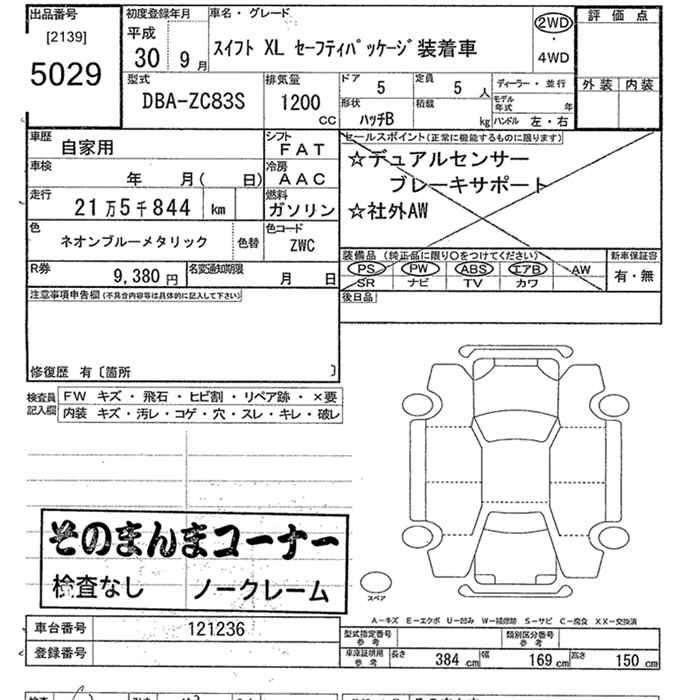 出品番号 初度登録年月 車名・グレード 評価点
[2139] 平成 2WD
5029 30 9月 スイフト XL セーフティパッケージ装着車 4WD
型式 排気量 ドア 定員 ディーラー・並行 外装 内装
DBA-ZC83S 1200 CC 5 5人 モデル年式 年
形状 ハッチB 積載 kg ハンドル 左・右
車歴 自家用 シフト FAT セールスポイント(正常に機能するものに限ります)
車検 年 月( 日) 冷房 AAC ☆デュアルセンサー
ブレーキサポート
走行 21万5千844 km 燃料 ガソリン ☆社外AW
色 ネオンブルーメタリック 色替 色コード ZWC
装備品(純正品に限り〇をつけてください) 新車保証書
PS PW ABS エアB AW 有・無
SR ナビ TV カワ
R券 9,380円 名変通知期限 月 日
後日品
注意事項申告欄(不具合内容等は具体的に記入して下さい)
修復歴 有〔箇所 〕
検査員記入欄 FW キズ・飛石・ヒビ割・リペア跡・×要
内装 キズ・汚レ・コゲ・穴・スレ・キレ・破レ
そのまんまコーナー
検査なし ノークレーム
スペア
A-キズ E-エクボ U-凹み W-補修跡 S-サビ C-腐食 XX-交換済
車台番号 121236
登録番号
型式指定番号 参考 類別区分番号 参考
車庫証明用 参考 長さ 384cm 幅 169cm 高さ 150cm